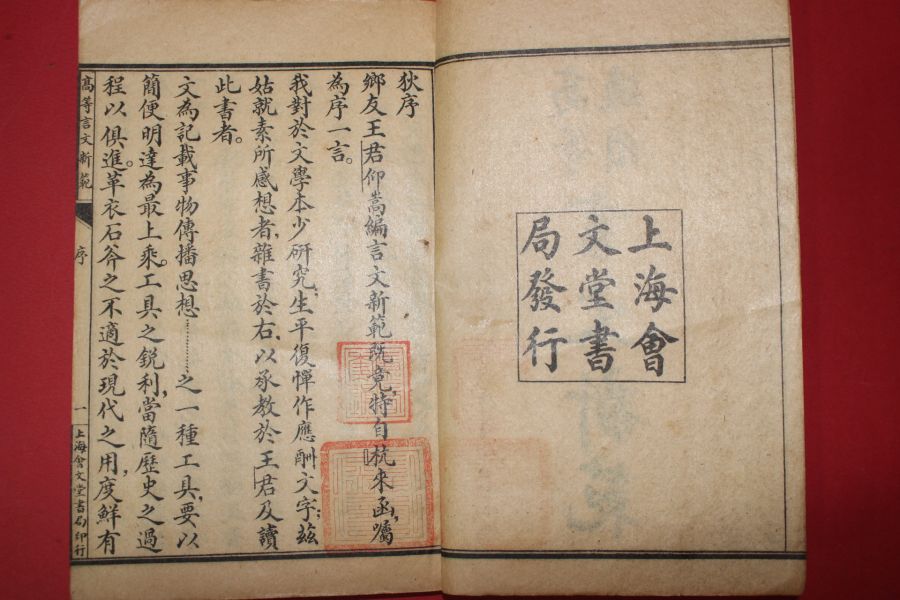 上海會
文堂書
局發行
狄序
鄉友王君仰嵩編言文新範既竟，特自杭來函，囑
為序一言。
我對於文學本少研究，生平復憚作應酬文字；茲
姑就素所感想者，雜書於右，以承教於王君及讀
此書者。
文為記載事物傳播思想…………之一種工具，要以
簡便明達為最上乘。工具之銳利，當隨歷史之過
程以俱進。革衣石斧之不適於現代之用，度鮮有
高等言文新範
序
一
上海會文堂書局印行